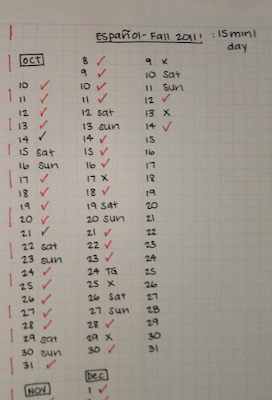 Español - Fall 2011! : 15 min1
day
OCT
10 ✓
11 ✓
12 ✓
13 ✓
14 ✓
15 Sat
16 Sun
17 ✓
18 ✓
19 ✓
20 ✓
21 ✓
22 Sat
23 Sun
24 ✓
25 ✓
26 ✓
27 ✓
28 ✓
29 Sat
30 Sun
31 ✓
NOV
8 ✓
9 ✓
10 ✓
11 ✓
12 Sat
13 Sun
14 ✓
15 ✓
16 ✓
17 X
18 ✓
19 Sat
20 Sun
21 ✓
22 ✓
23 ✓
24 TG
25 X
26 Sat
27 Sun
28 ✓
29 X
30 ✓
Dec
1 ✓
9 X
10 Sat
11 Sun
12 ✓
13 X
14 ✓
15
16
17
18
19
20
21
22
23
24
25
26
27
28
29
30
31